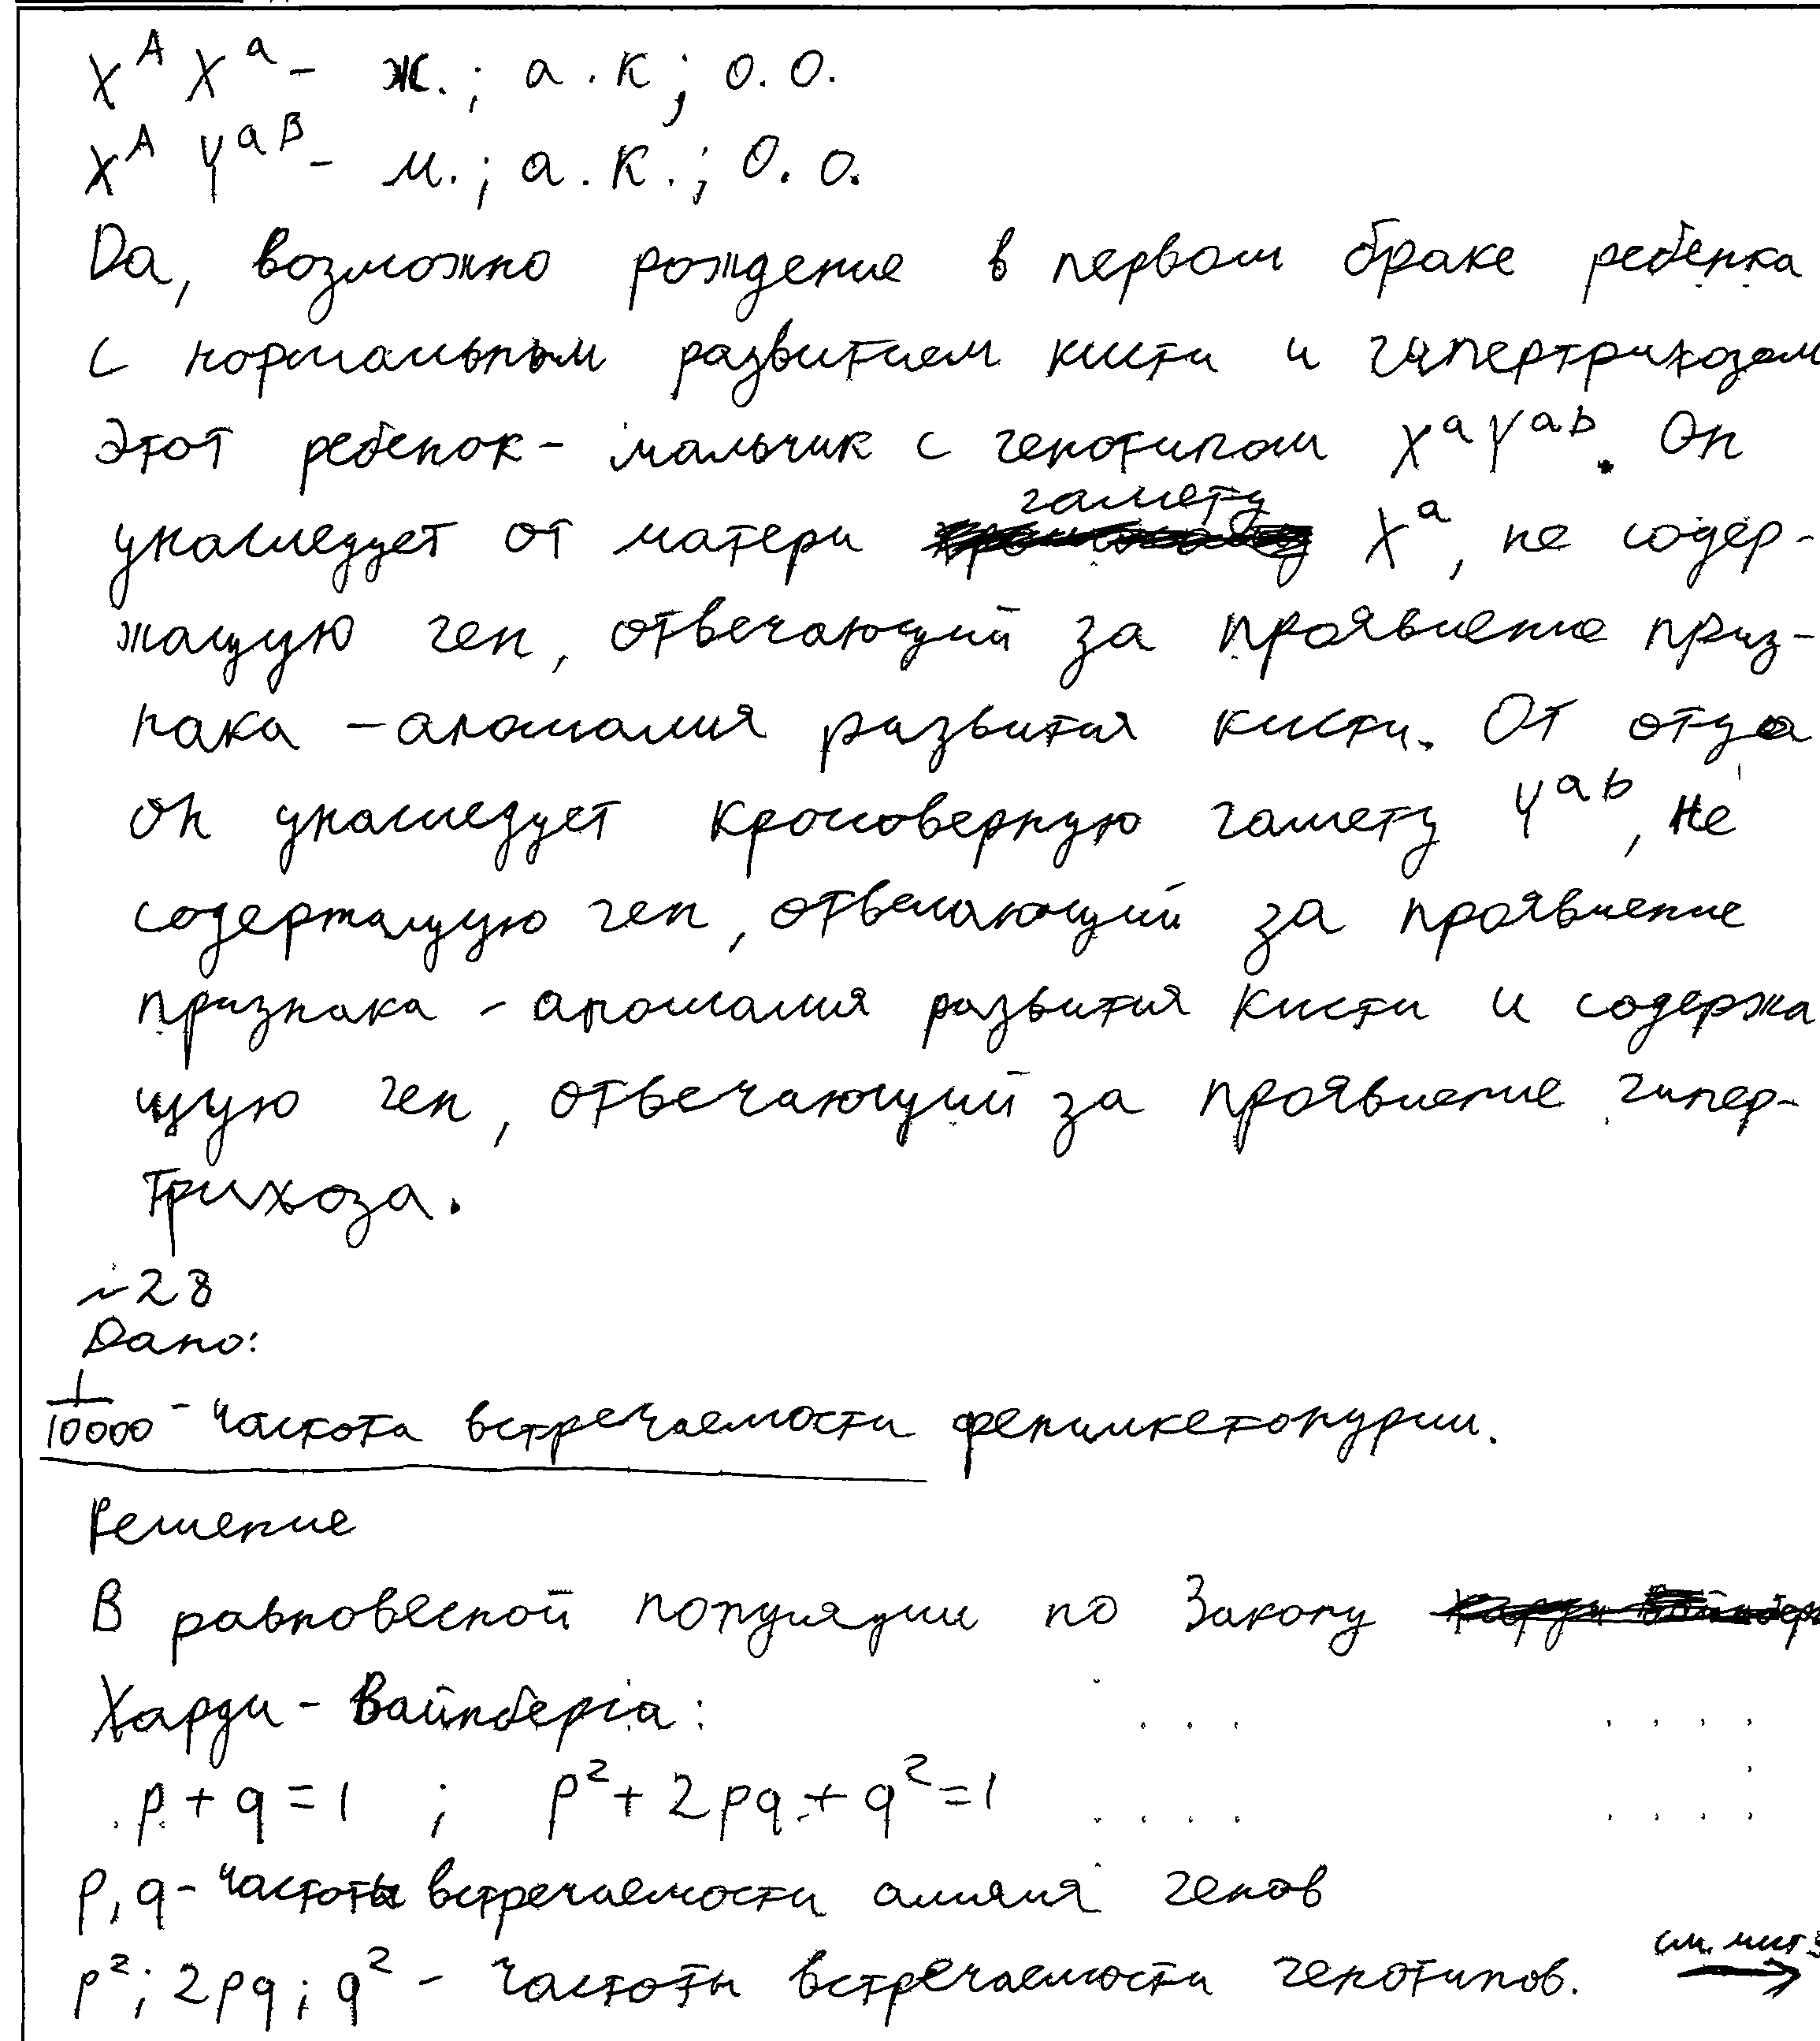 X^A X^a - ж.; а.к; о.о.
X^A Y^aB - м.; а.к.; о.о.
Да, возможно рождение в первом браке ребенка
с нормальным развитием кисти и гипертрихозом
Этот ребенок - мальчик с генотипом X^a Y^ab. Он
унаследует от матери гамету X^a, не содер-
жащую ген, отвечающий за проявление приз-
нака - аномалия развития кисти. От отца
он унаследует кроссоверную гамету Y^ab, не
содержащую ген, отвечающий за проявление
признака - аномалия развития кисти и содержа
щую ген, отвечающий за проявление гипер-
трихоза.
№28
Дано:
1/10000 - частота встречаемости фенилкетонурии.
Решение
В равновесной популяции по Закону
Харди - Вайнберга:
p + q = 1 ; p² + 2pq + q² = 1
p, q - частоты встречаемости аллеля генов
p²; 2pq; q² - частоты встречаемости генотипов.
см. лист 3